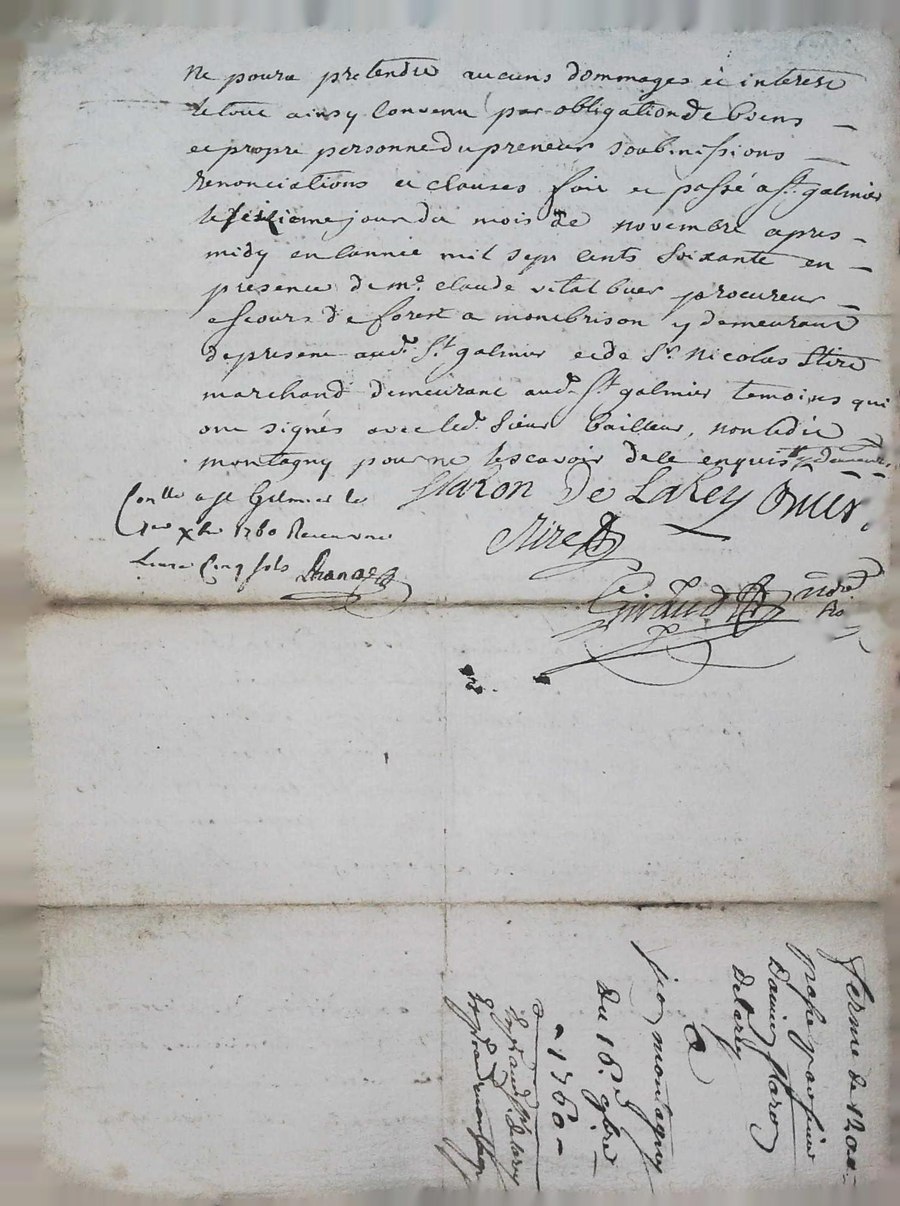 ne poura pretendre aucuns dommages et interest
le tout ainsy convenu par obligation de biens
et propre personne du preneur soubmissions
renonciations et clauses fait et passé a st. galmier
le seizieme jour du mois de novembre apres
midy en l'année mil sept cents soixante en
presence de me. claude vital buer procureur
es cours de forest a montbrison y demeurant
de present aud. st galmier et de sr. nicolas Stire
marchand demeurant aud. st galmier temoins qui
ont signés avec led. sieur bailleur, non ledit
montagny pour ne le scavoir de ce enquis
Staron De Larey Buer
Stire
Conllé a st Galmier le
1760
Livre Cinq sols
Giraud nore Ro
ferme de
passé par sieur
Staron
delarey
a
montagny
du 16e 9bre
1760